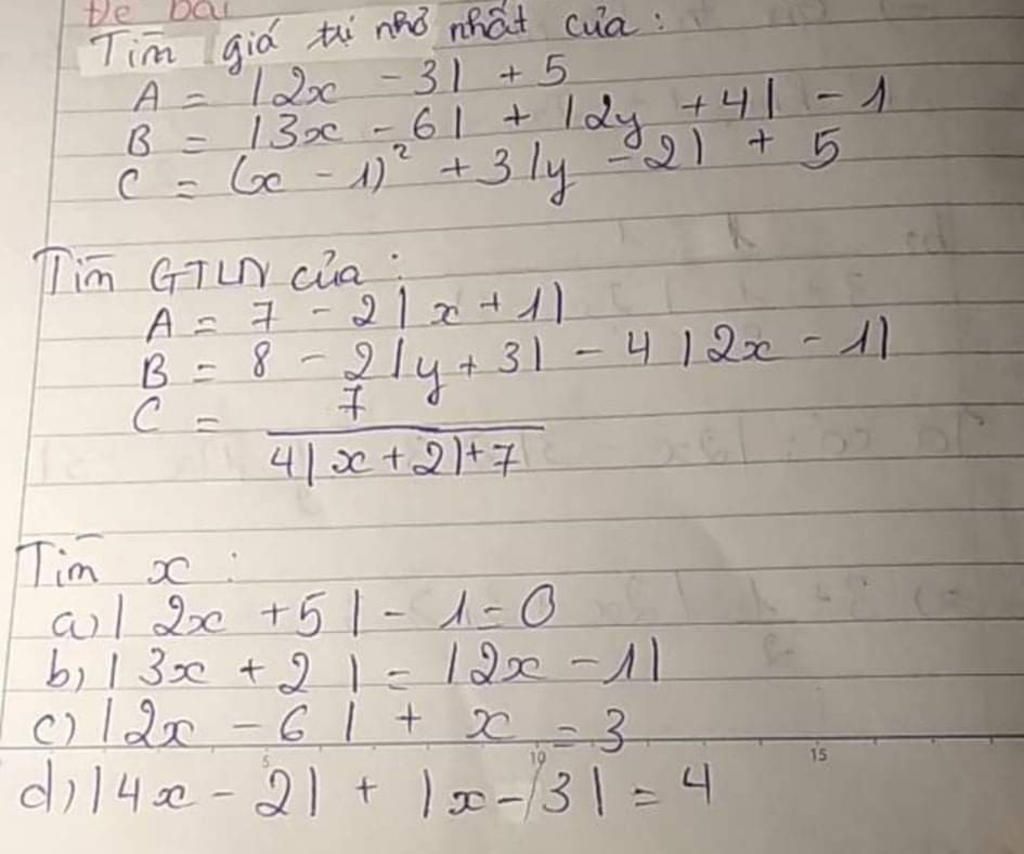 Đề bài
Tìm giá trị nhỏ nhất của :
A = |2x - 3| + 5
B = |3x - 6| + |2y + 4| - 1
C = (x - 1)² + 3|y - 2| + 5
Tìm GTLN của :
A = 7 - 2|x + 1|
B = 8 - 2|y + 3| - 4|2x - 1|
C = 7
4|x + 2| + 7
Tìm x :
a) |2x + 5| - 1 = 0
b) |3x + 2| = |2x - 1|
c) |2x - 6| + x = 3
5 10 15
d) |4x - 2| + |x - 3| = 4